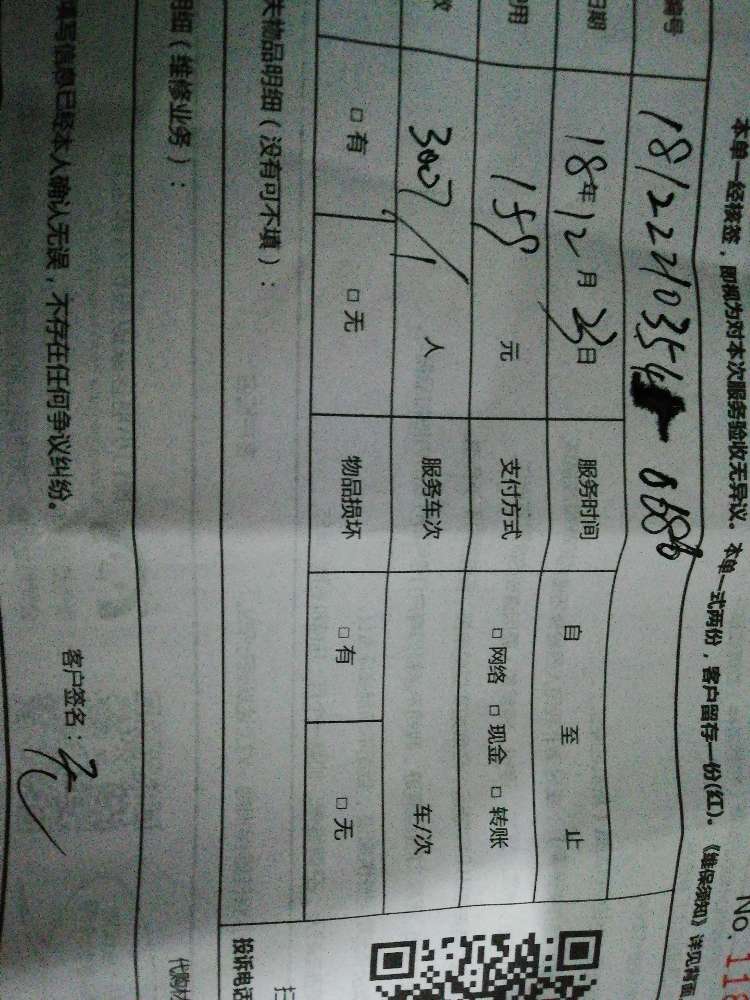 No.118
本单一经核签，即视为对本次服务验收无异议。本单一式两份，客户留存一份(红)。《维保须知》详见背面
编号 181222210354 0686
日期 18年12月23日 服务时间 自 至 止
用 159 元 支付方式 □网络 □现金 □转账
数 人 服务车次 车/次
□有 □无 物品损坏 □有 □无
失物品明细（没有可不填）：
明细（维修业务）：
填写信息已经本人确认无误，不存在任何争议纠纷。
客户签名：
投诉电话
扫